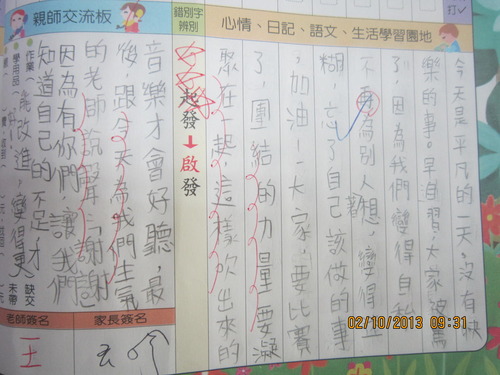 打✓
心情、日記、語文、生活學習園地
今天是平凡的一天。沒有快
樂的事。早自習,大家被罵
了,因為我們變得自私
不再為別人著想,變得
糊,忘了自己該做的事
,加油!大家要比賽
了,團結的力量要凝
聚在一起,這樣吹出來的
錯別字辨別
起發➡啟發
親師交流板
音樂才會好聽,最
後,跟今天為我們生氣
的老師說聲:「謝謝
因為有你們,讓我們
知道自己的不足,才
能改進,變得更
作業(
缺交
學用品(
未帶
老師簽名
家長簽名
王
02/10/2013 09:31